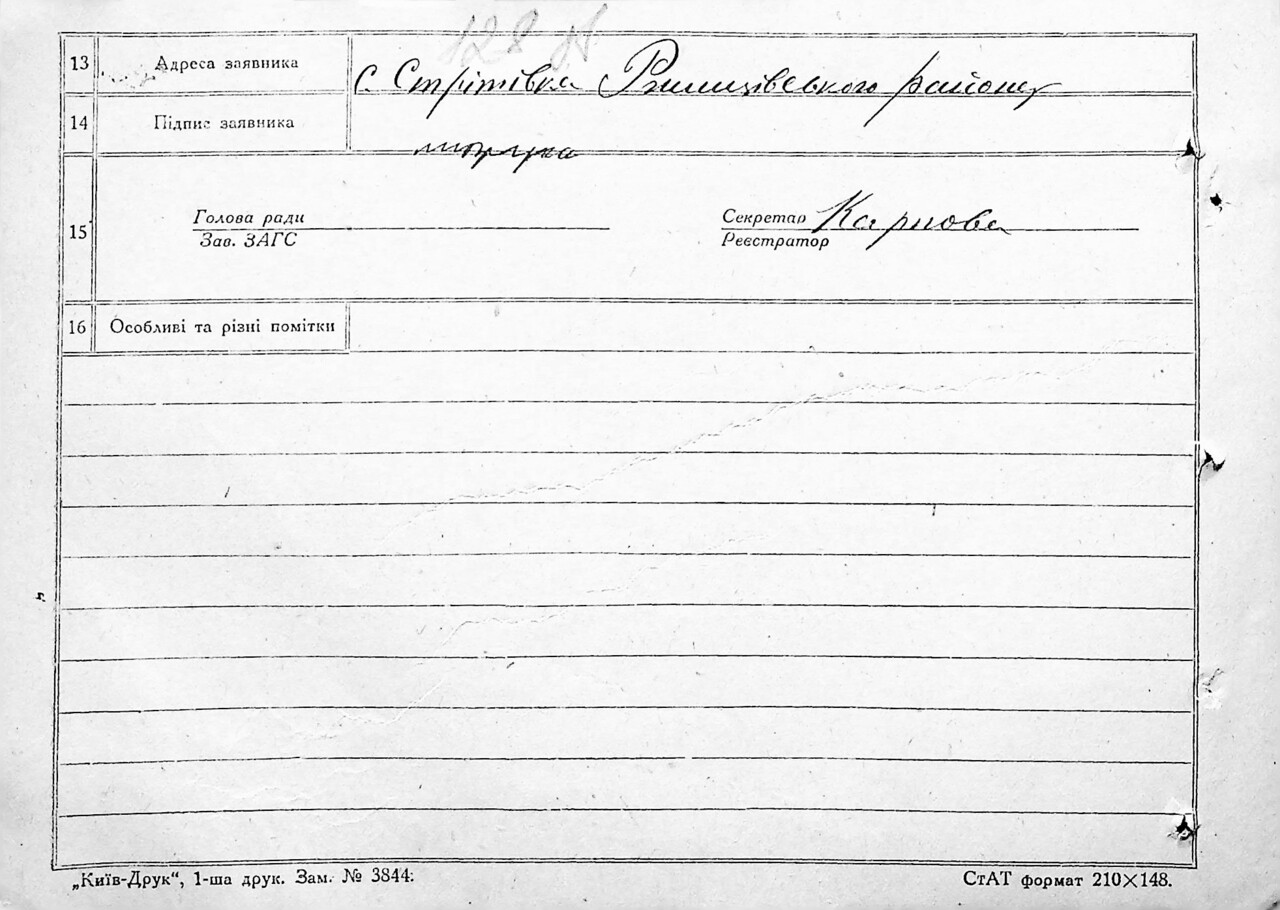 128
13 Адреса заявника с. Стрітівка Ржищівського району
14 Підпис заявника
15 Голова ради Секретар Карпова
Зав. ЗАГС Реєстратор
16 Особливі та різні помітки
„Київ-Друк“, 1-ша друк. Зам. № 3844. СтАТ формат 210×148.